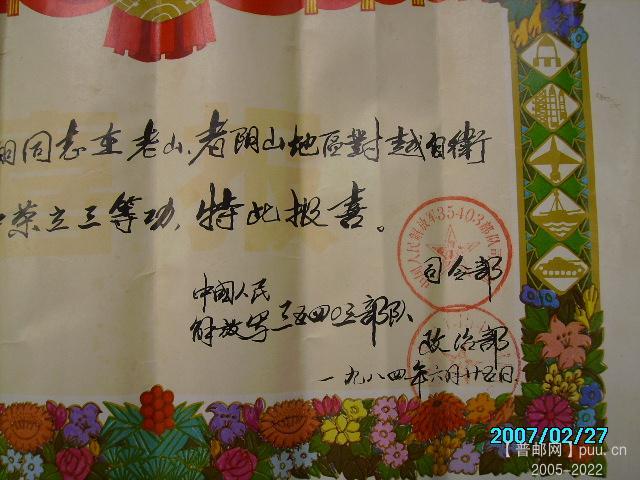 同志在老山、者阴山地區對越自衛
荣立三等功,特此报喜。
中國人民
解放军三五四〇三部队
司令部
政治部
一九八四年六月廿五日
中国人民解放军35403部队司
2007/02/27
【普邮网】puu.cn
2005-2022